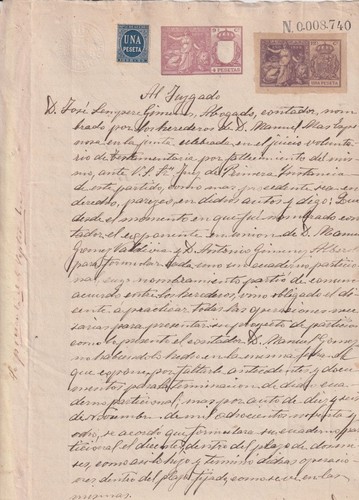 N. 0.008.740
UNA
PESETA
Al Juzgado
D. José Sempere Gimenez, Abogado, contador, nom-
brado por los herederos de D. Manuel
nova en la junta celebrada en el juicio volunta-
rio de testamentaria por fallecimiento del mis-
mo, ante V.S. Sr. Juez de Primera Instancia
de este partido, como mas procedente sea en
derecho, parezco en dichos autos y digo: Que
desde el momento en que fué nombrado con-
tador el exponente en union de D. Manuel
Gomez Valdivia y D. Antonio
para formular cada uno su cuaderno particio-
nal, cuyo nombramiento partió de comun
acuerdo entre los herederos, vino obligado el di-
cente a practicar todas las operaciones nece-
sarias para presentar su proyecto de particion
como le presentó el contador D. Manuel Gomez
no habiendolo hecho en la misma fecha el
que expone, por faltarle antecedentes y docu-
mentos para la terminacion de dicho cua-
derno particional, mas por auto de diez y seis
de Noviembre de mil ochocientos noventa y
ocho, se acordó que formulara su cuaderno par-
ticional el dicente dentro del plazo de dos me-
ses, como asi lo hizo y terminó dichas operacio-
nes dentro del plazo fijado, como se vé en las
mismas.